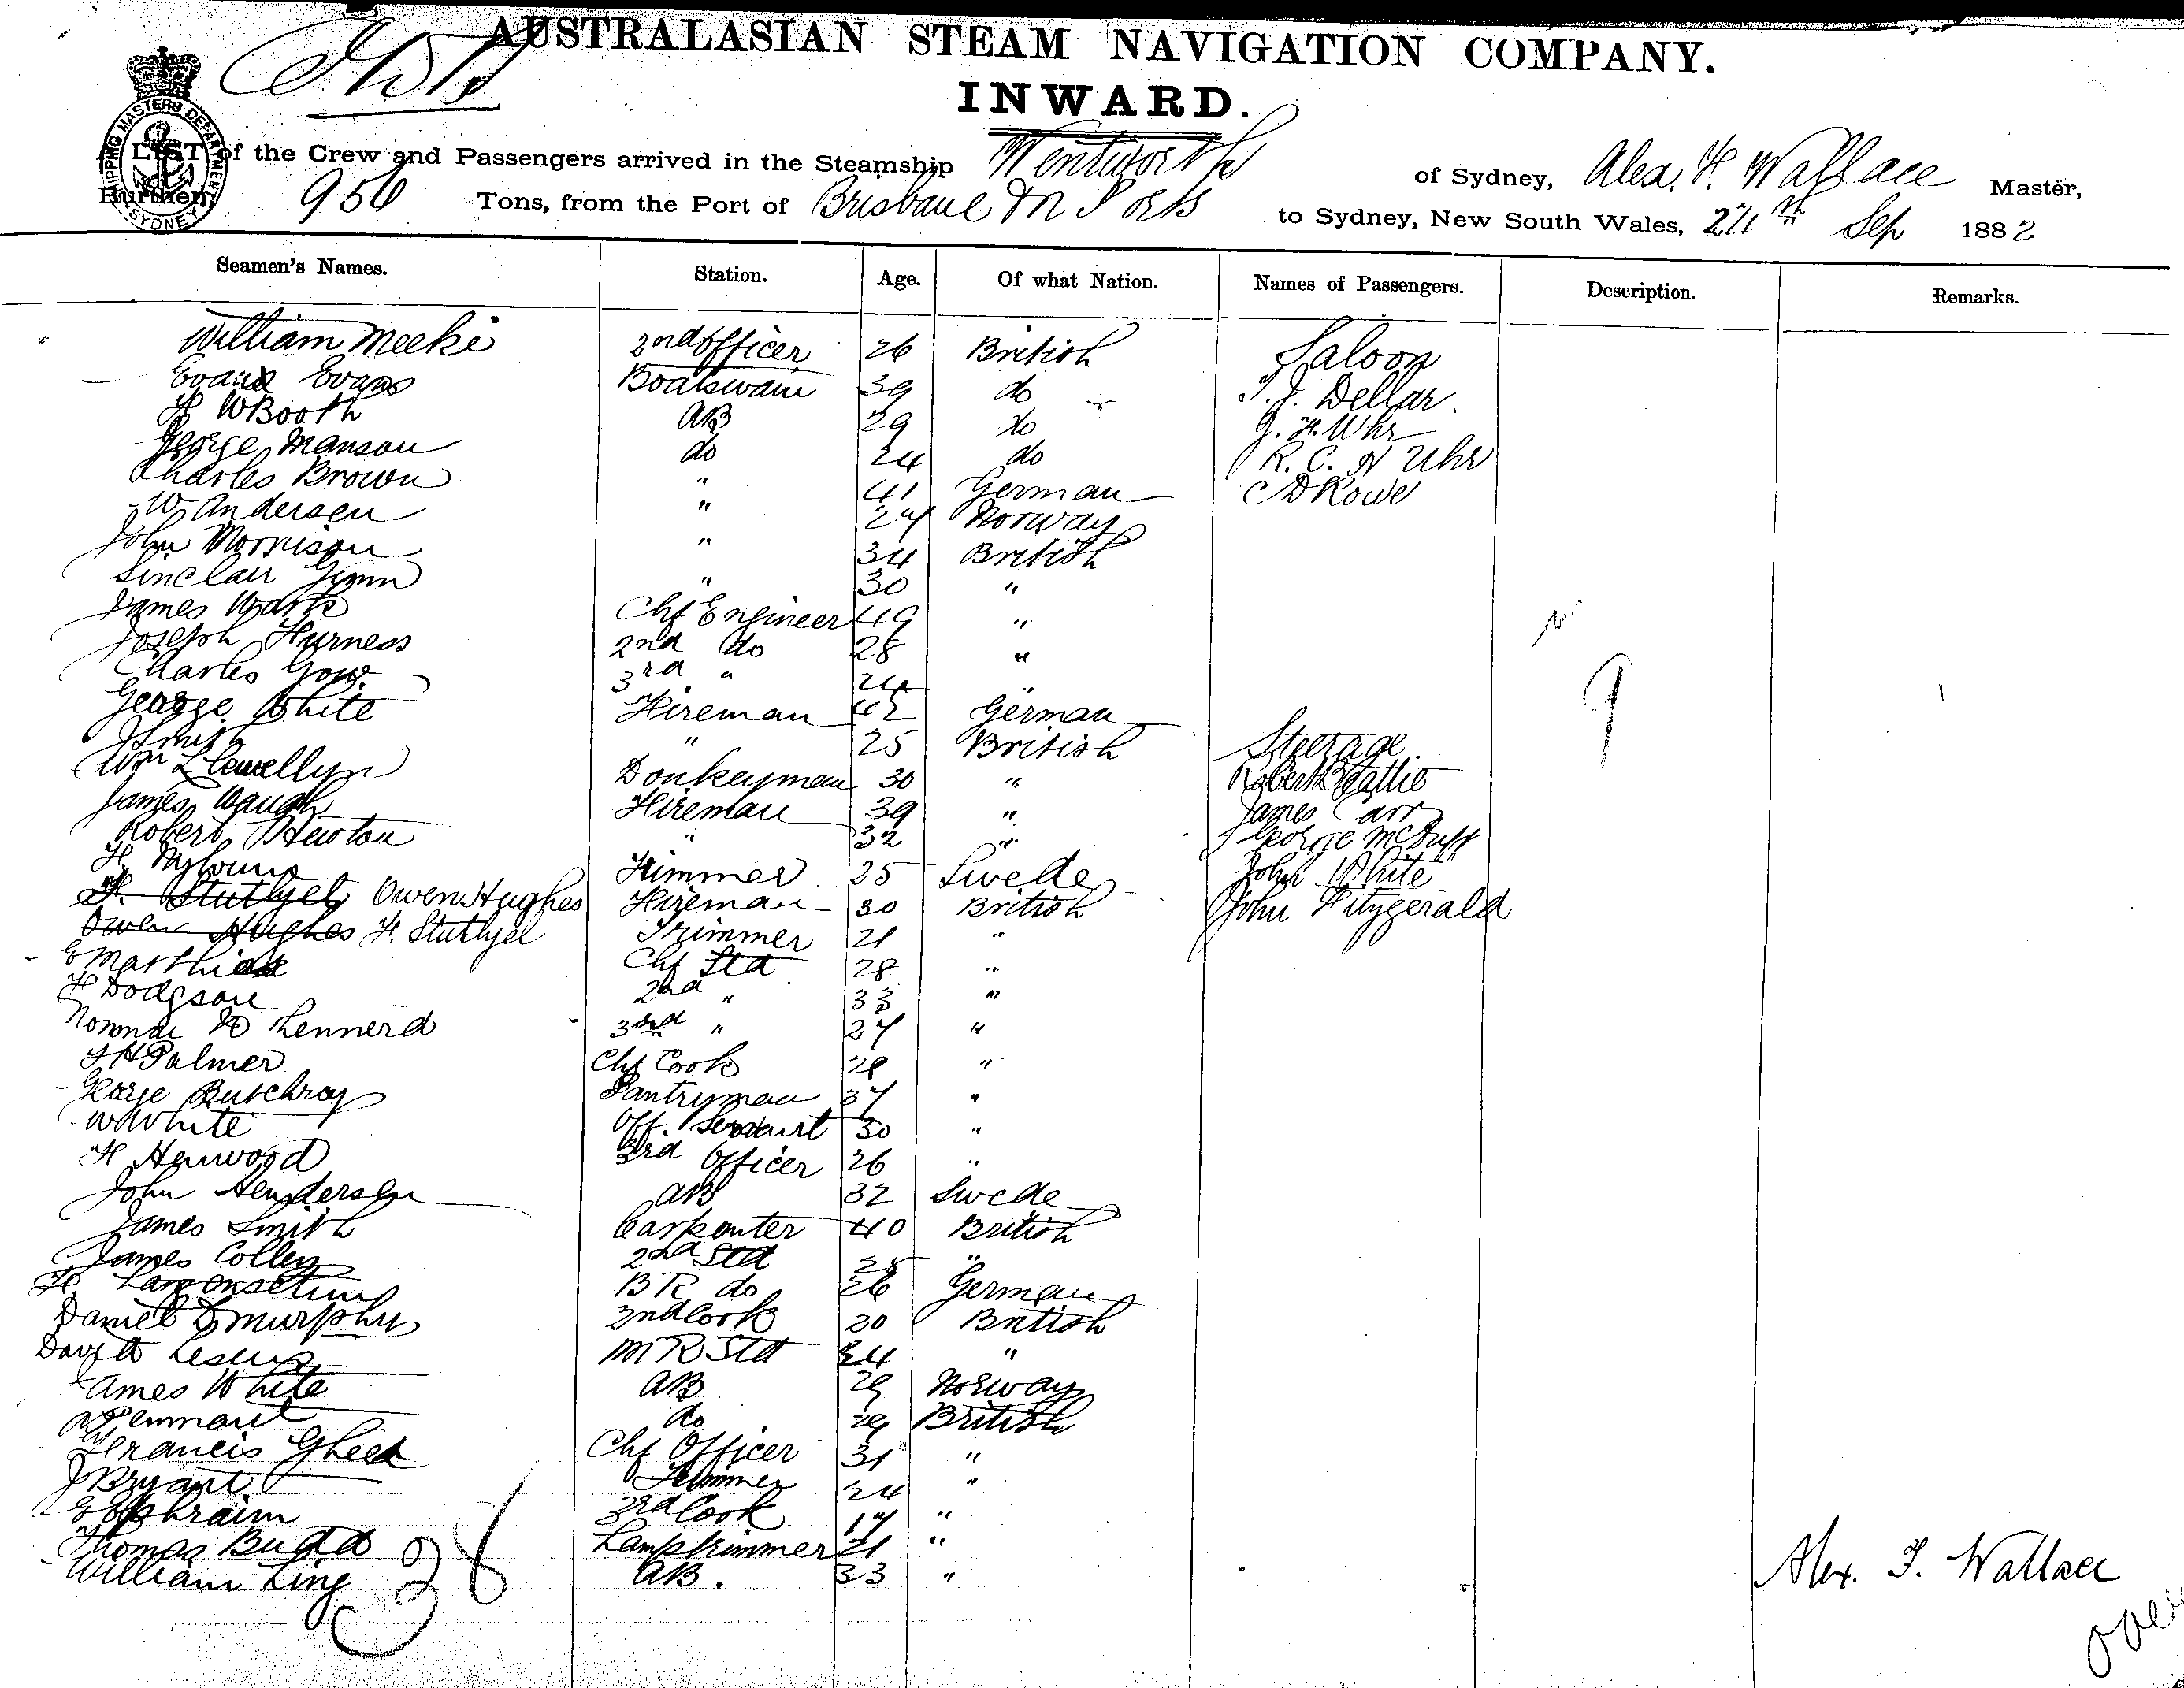 AUSTRALASIAN STEAM NAVIGATION COMPANY.
INWARD.
SHIPPING MASTERS DEPARTMENT SYDNEY
A LIST of the Crew and Passengers arrived in the Steamship Wentworth of Sydney, Alex. F. Wallace Master,
Burthen 950 Tons, from the Port of Brisbane & M Ports to Sydney, New South Wales, 24th Sep 1882
Seamen's Names. Station. Age. Of what Nation. Names of Passengers. Description. Remarks.
William Meeke 2nd Officer 26 British Saloon
Evans Evans Boatswain 39 do T. J. Dellar
H W Booth AB 29 do J. F. Uhr
George Manson do 24 do R. C. H Uhr
Charles Brown " 41 German C D Rowe
W Andersen " 24 Norway
John Morrison " 34 British
Sinclair Ginn " 30 "
James Wark Chf Engineer 49 "
Joseph Furness 2nd do 28 "
Charles Gow 3rd " 24 "
George White Fireman 42 German
J Smith " 25 British Steerage
Wm Llewellyn Donkeyman 30 " Robert Beattie
James Waugh Fireman 39 " James Carr
Robert Newton " 32 " George McDuff
Trimmer 25 Swede John White
F. Stuthjel Owen Hughes Fireman 30 British John Fitzgerald
Owen Hughes F. Stuthjel Trimmer 21 "
E Matthias Chf Std 28 "
F Dodgson 2nd " 33 "
Lennerd 3rd " 27 "
Palmer Chf Cook 28 "
George Butchroy Pantryman 37 "
W White Off. Servant 30 "
H Henwood 3rd Officer 26 "
John Hendersen AB 32 Swede
James Smith Carpenter 40 British
James Colley 2nd Std 25 "
BR do 26 German
Daniel D Murphy 2nd Cook 30 British
David Leslie MR Std 24 "
James White AB 29 Norway
Penman do 29 British
Francis Gheer Chf Officer 31 "
J Bryant Trimmer 24 "
E Ephraim 3rd Cook 17 "
Thomas Budd Lamptrimmer 21 "
William King AB. 33 "
38
9
Alex. F. Wallace
over